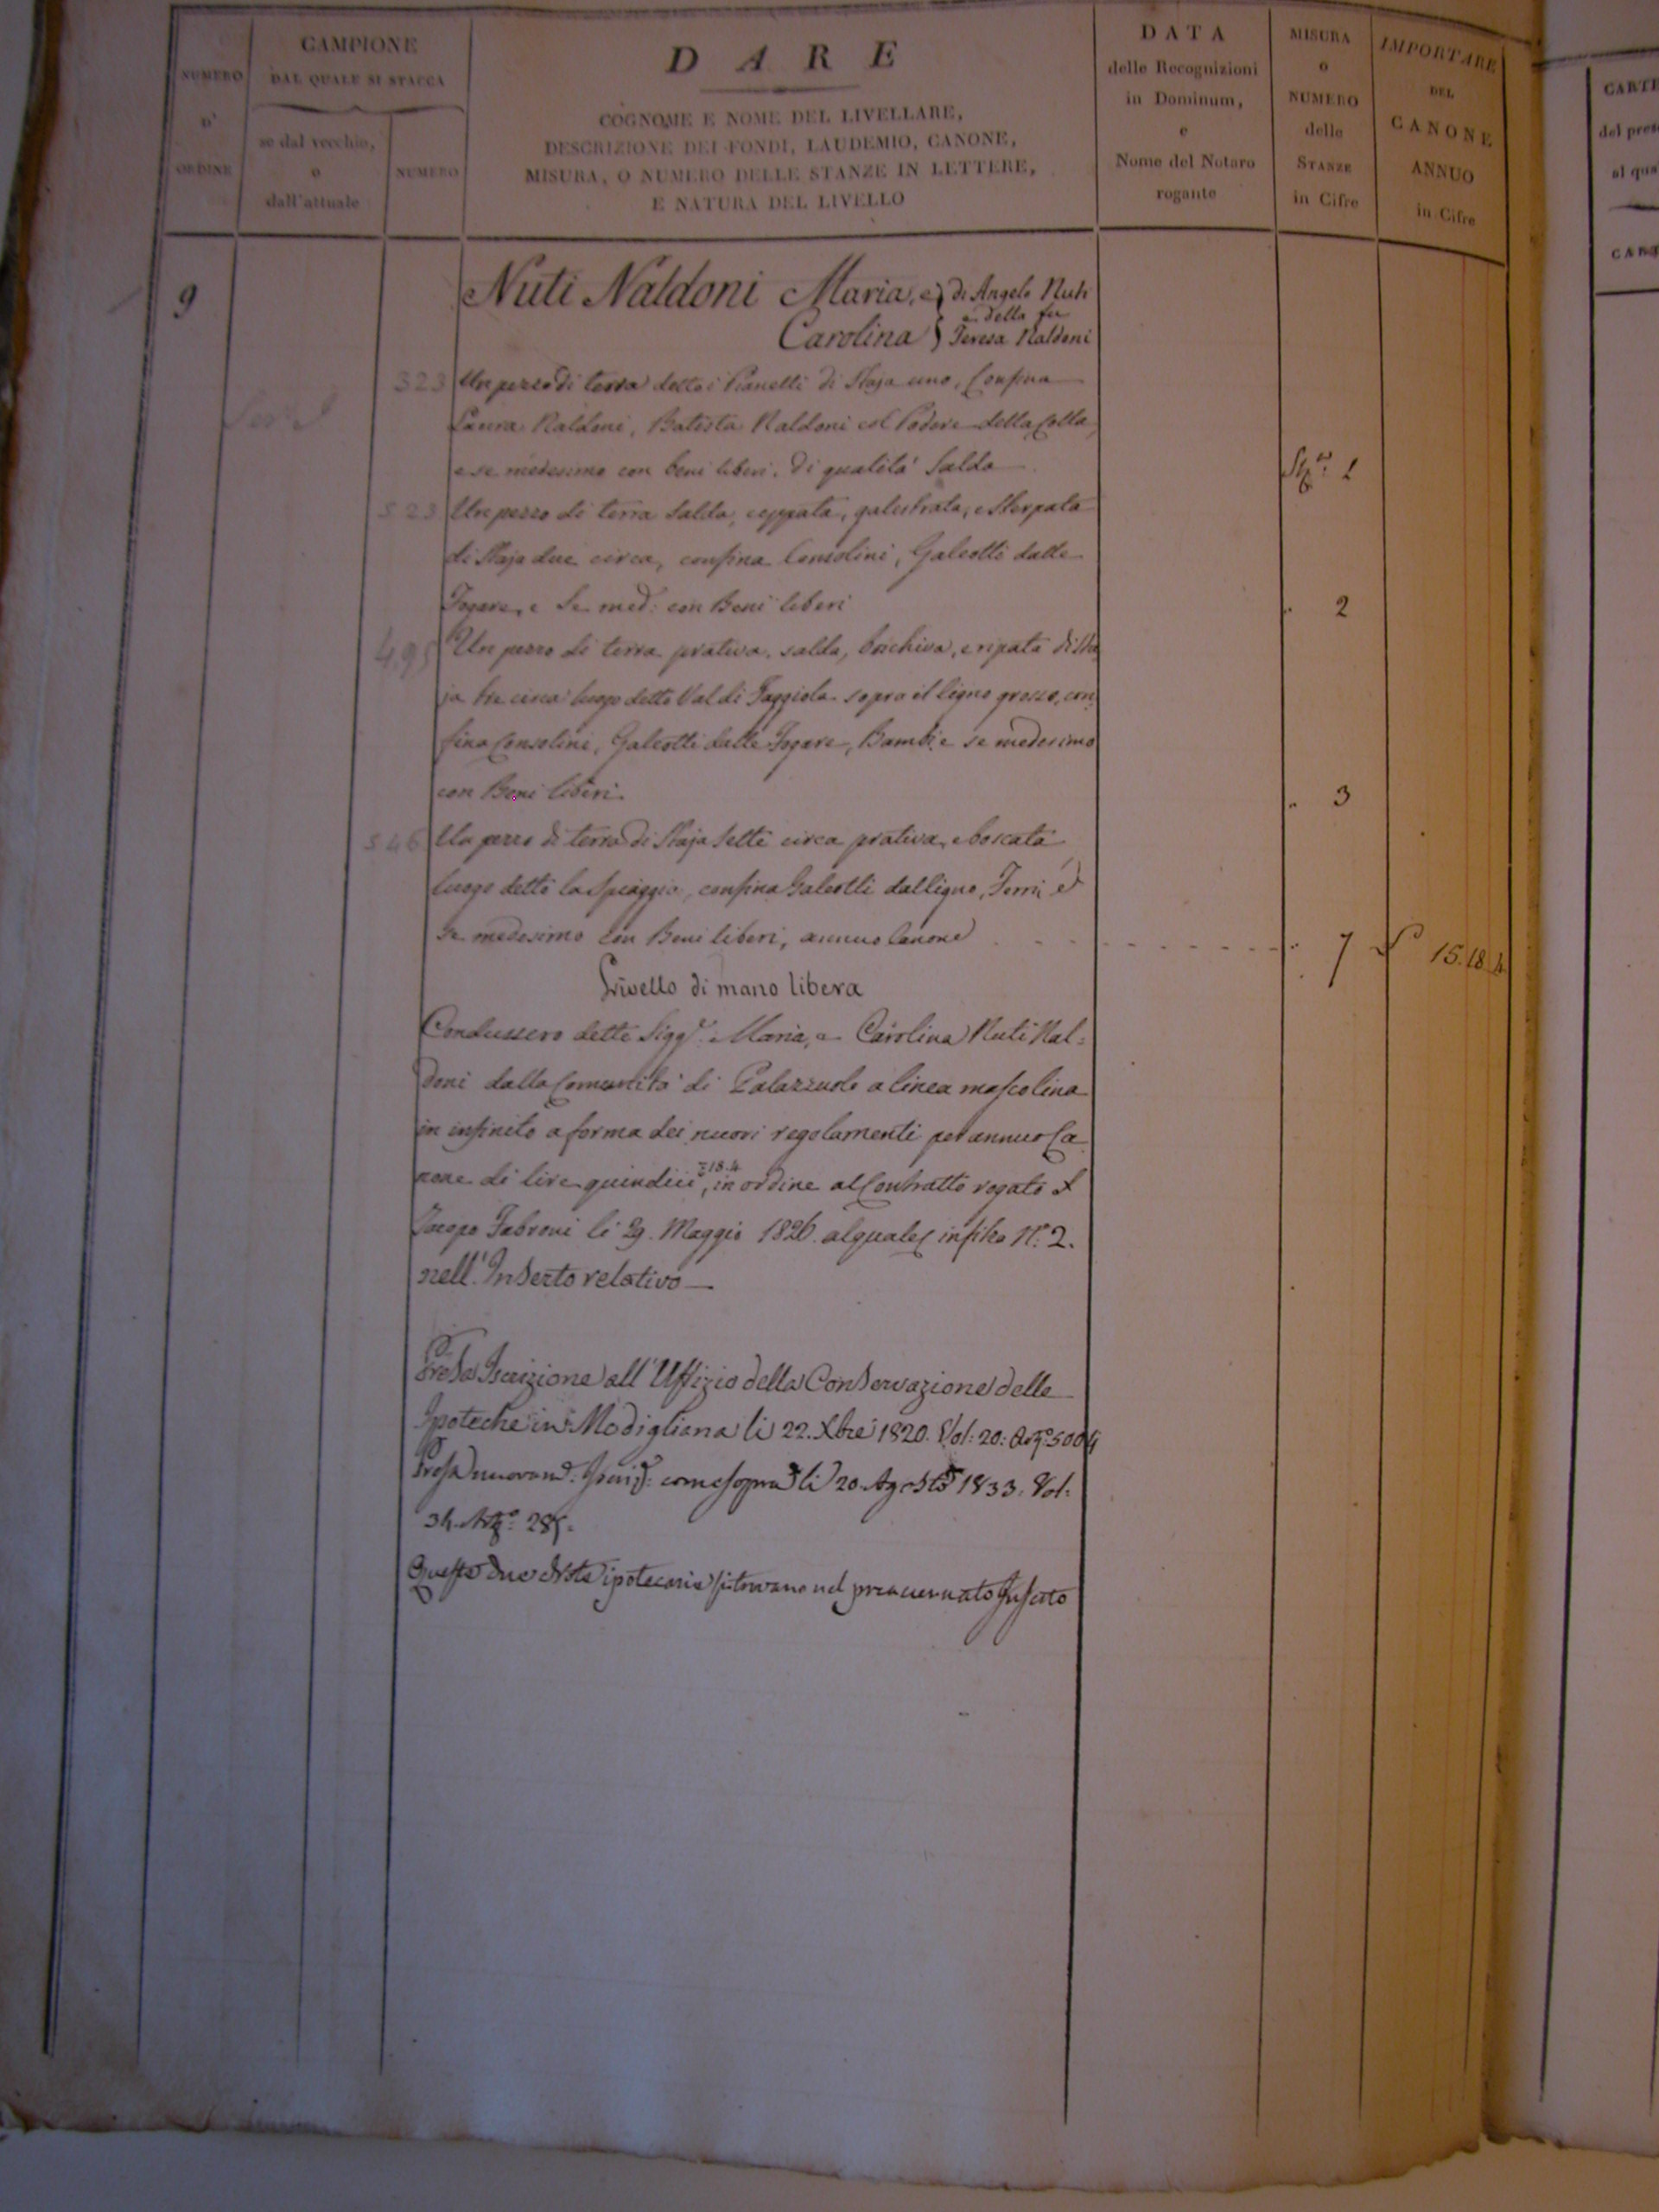 NUMERO
D'
ORDINE
CAMPIONE
DAL QUALE SI STACCA
se dal vecchio,
o
dall'attuale
NUMERO
DARE
COGNOME E NOME DEL LIVELLARE,
DESCRIZIONE DEI FONDI, LAUDEMIO, CANONE,
MISURA, O NUMERO DELLE STANZE IN LETTERE,
E NATURA DEL LIVELLO
DATA
delle Recognizioni
in Dominum,
e
Nome del Notaro
rogante
MISURA
o
NUMERO
delle
STANZE
in Cifre
IMPORTARE
DEL
CANONE
ANNUO
in Cifre
9
Nuti Naldoni Maria, e } di Angelo Nuti
e della fu
Carolina } Teresa Naldoni
323 Un pezzo di terra detto i Pianelli di Staja uno, Confina
Laura Naldoni, Batista Naldoni col Podere della Colla,
e se medesimo con beni liberi, di qualità Salda
1
523 Un pezzo di terra Salda, ceppata, galestrata, e Sterpata
di Staja due circa, confina Consolini, Galeotti dalle
Fogare, e Se med: con Beni liberi
2
495 Un pezzo di terra prativa, salda, boschiva, e ripata di Sta
ja tre circa luogo detto Val di Faggiola sopra il ligno grosso, con
fina Consolini, Galeotti dalle Fogare, Bambi e se medesimo
con Beni liberi.
3
546 Un pezzo di terra di Staja Sette circa prativa, e boscata
luogo detto la Spiaggia, confina Galeotti dal ligno, Ferri e
Se medesimo con Beni liberi, annuo Canone
7 15.18.4
Livello di mano libera
Condussero dette Sigg.e Maria, e Carolina Nuti Nal=
doni dalla Comunità di Palazzuolo a linea mascolina
in infinito a forma dei nuovi regolamenti per annuo Ca
none di lire quindici 18.4, in ordine al Contratto rogato
Jacopo Fabroni li 29. Maggio 1826. al quale in filza N.° 2.
nell'Inserto relativo
Presa Iscrizione all'Uffizio della Conservazione delle
Ipoteche in Modigliana li 22. Xbre 1820. Vol: 20:
Presa come sopra li 20. Agosto 1833. Vol:
34.
Queste due Note ipotecarie si trovano nel preaccennato Inserto
CARTE
del
al